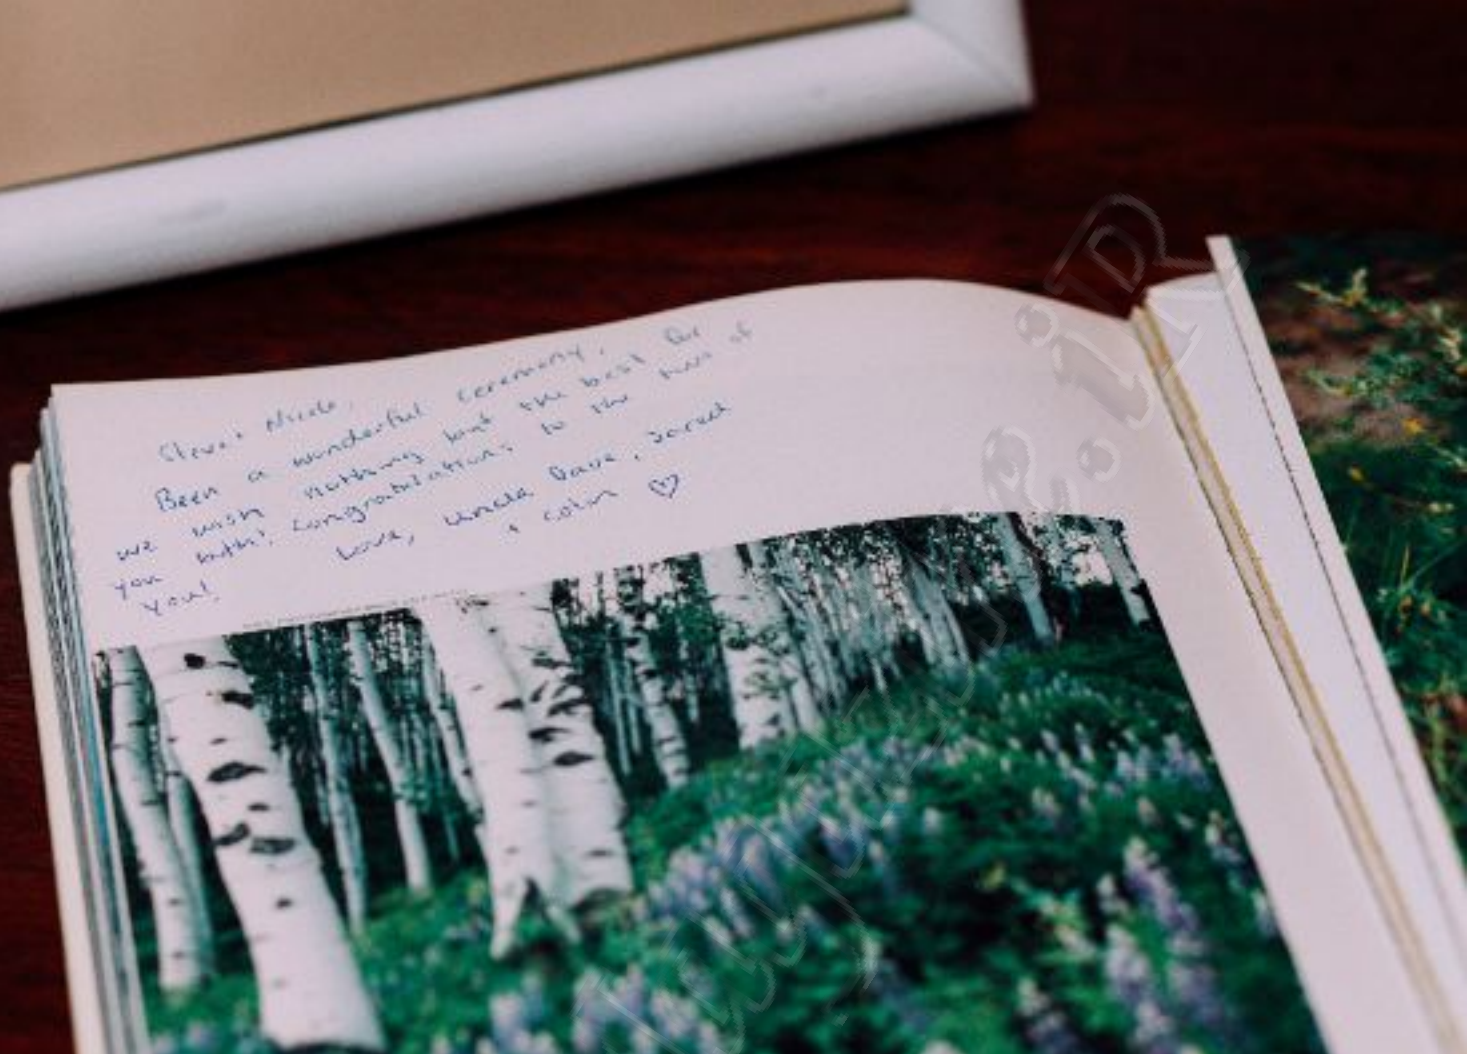 Steve + Nicole,
Been a wonderful ceremony,
we wish nothing but the best for
you both! Congratulations to the two of
you!
Love, Uncle Dave, Jarett
+ Colin ♡